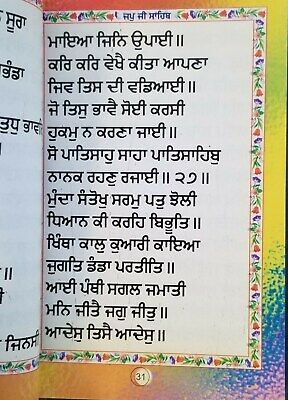 ਨ ਸੂਰਾ
ਭੰਡਾ
ਤੁਧੁ ਭਾਵ
ਨ ਜਿਨਸੀ
ਜਪੁ ਜੀ ਸਾਹਿਬ
ਮਾਇਆ ਜਿਨਿ ਉਪਾਈ॥
ਕਰਿ ਕਰਿ ਵੇਖੈ ਕੀਤਾ ਆਪਣਾ
ਜਿਵ ਤਿਸ ਦੀ ਵਡਿਆਈ॥
ਜੋ ਤਿਸੁ ਭਾਵੈ ਸੋਈ ਕਰਸੀ
ਹੁਕਮੁ ਨ ਕਰਣਾ ਜਾਈ॥
ਸੋ ਪਾਤਿਸਾਹੁ ਸਾਹਾ ਪਾਤਿਸਾਹਿਬੁ
ਨਾਨਕ ਰਹਣੁ ਰਜਾਈ॥ ੨੭॥
ਮੁੰਦਾ ਸੰਤੋਖੁ ਸਰਮੁ ਪਤੁ ਝੋਲੀ
ਧਿਆਨ ਕੀ ਕਰਹਿ ਬਿਭੂਤਿ॥
ਖਿੰਥਾ ਕਾਲੁ ਕੁਆਰੀ ਕਾਇਆ
ਜੁਗਤਿ ਡੰਡਾ ਪਰਤੀਤਿ॥
ਆਈ ਪੰਥੀ ਸਗਲ ਜਮਾਤੀ
ਮਨਿ ਜੀਤੈ ਜਗੁ ਜੀਤੁ॥
ਆਦੇਸੁ ਤਿਸੈ ਆਦੇਸੁ॥
31